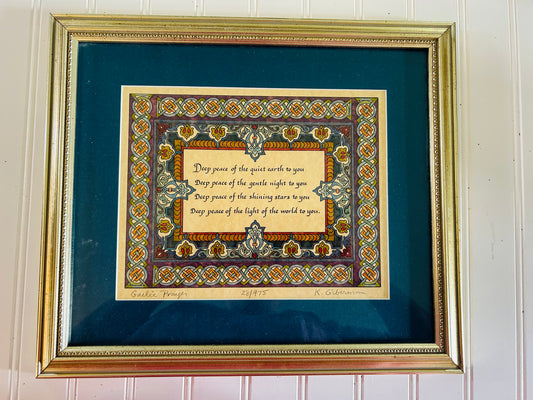 Deep peace of the quiet earth to you
Deep peace of the gentle night to you
Deep peace of the shining stars to you
Deep peace of the light of the world to you.
Gaelic Prayer
K.